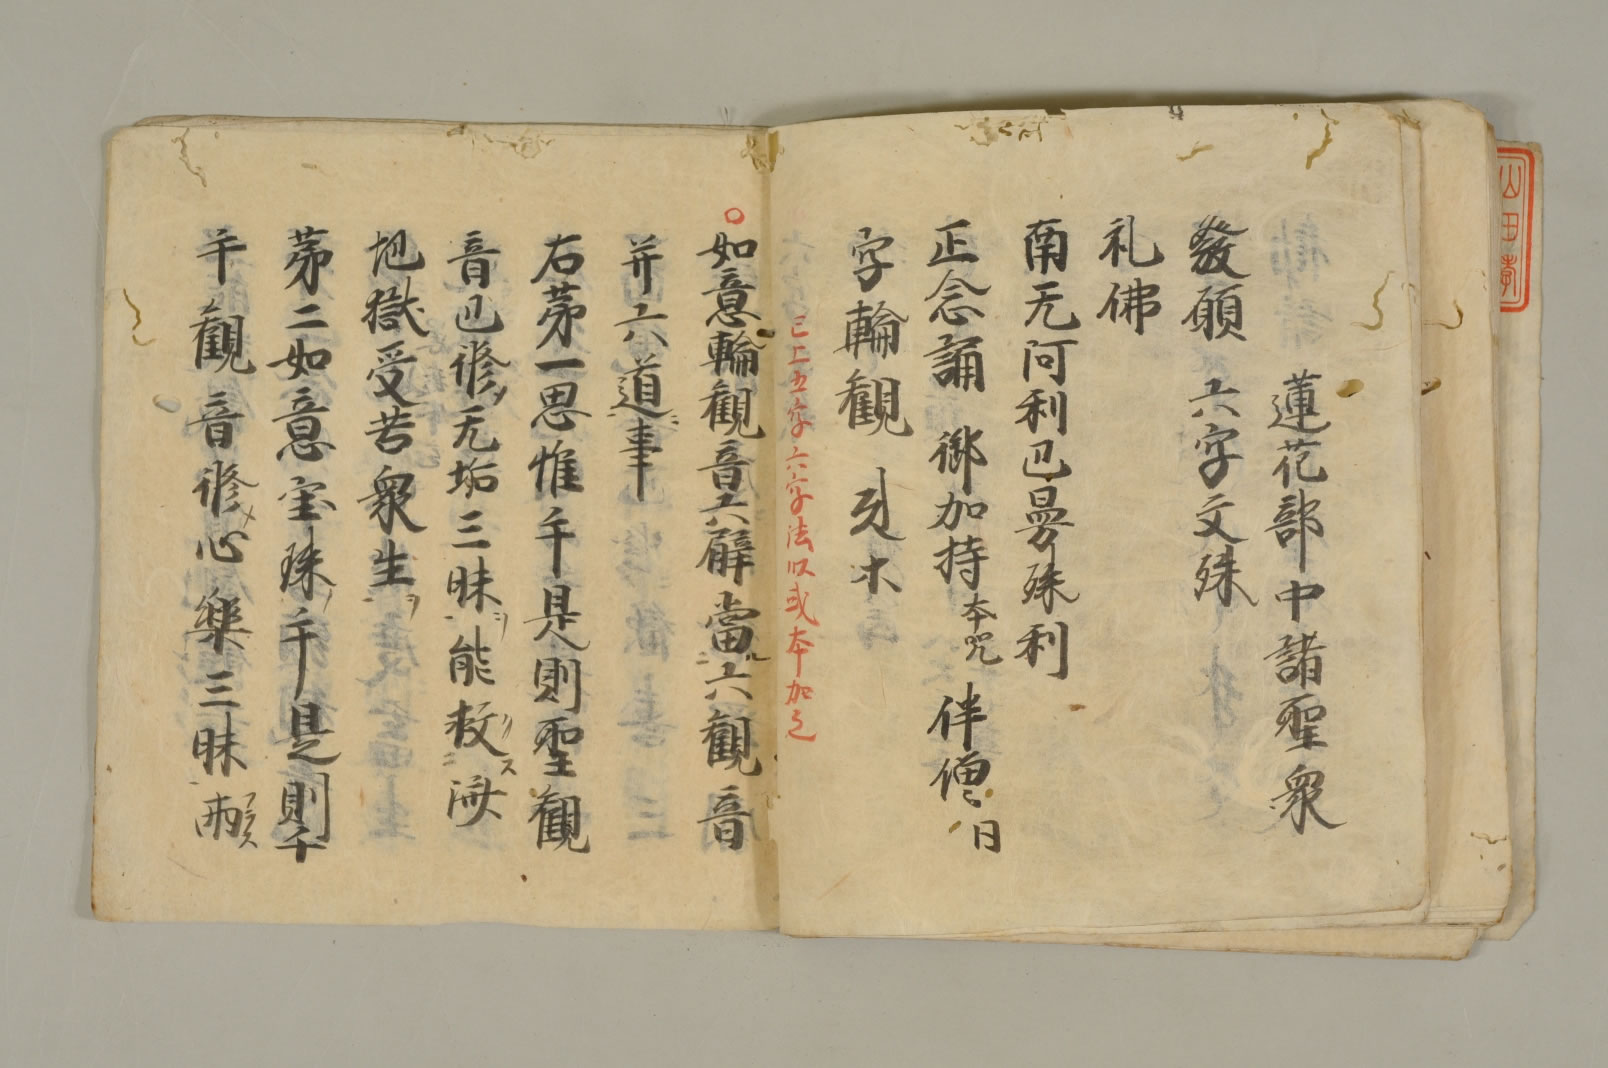 蓮花部中諸聖衆
發願 六字文殊
礼佛
南无阿利也曼殊利
正念誦 御加持 本咒 伴僧〻日
字輪觀
已上五字六字法以或本加之
如意輪觀音六臂當六觀音
并六道事
右第一思惟手是則聖觀
音也修无垢三昧能救濟
地獄受苦衆生
第二如意宝珠手是則千
手觀音修心樂三昧
山田